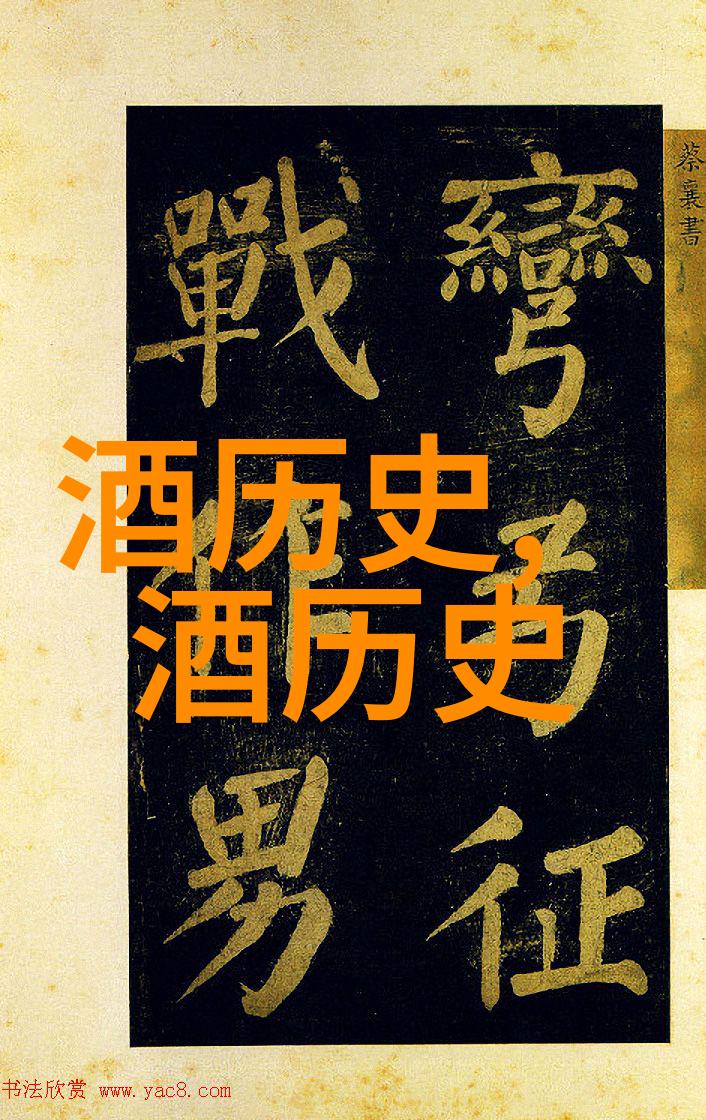 蔡襄書
彎弓征
戰作男
酒历史,
酒历史
书法欣赏 www.yac8.com